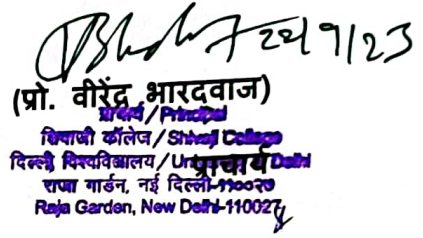 22/9/23
(प्रो. वीरेंद्र भारदवाज)
प्राचार्य/Principal
शिवाजी कॉलेज/Shivaji College
दिल्ली विश्वविद्यालय/ प्राचार्य Delhi
राजा गार्डन, नई दिल्ली-110027
Raja Garden, New Delhi-110027